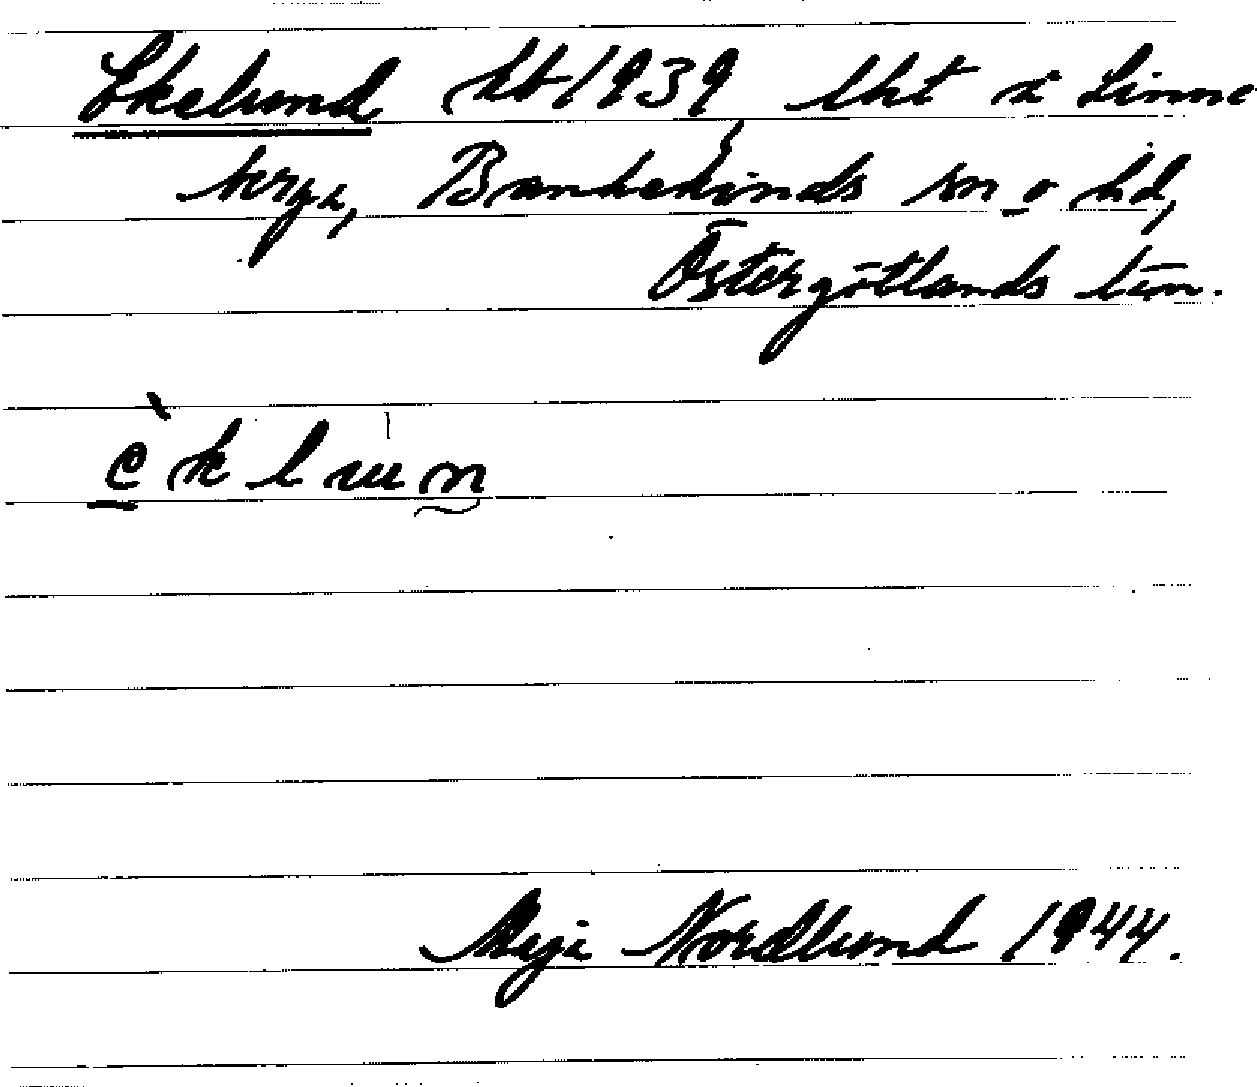 Ekelund (kb 1939) lht i Linne
berga, Bankekinds sn o hd,
Östergötlands län.
èklun
Meji Nordlund 1944.